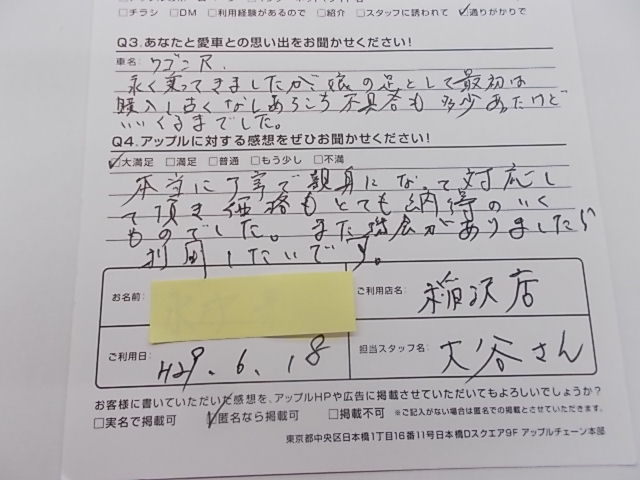 □チラシ □DM □利用経験があるので □紹介 □スタッフに誘われて ☑通りがかりで
Q3.あなたと愛車との思い出をお聞かせください!
車名: ワゴンR.
永く乗ってきましたが娘の足として最初は
購入し古くなしあろころ不具合も多少あたけど
いいくるまでした。
Q4.アップルに対する感想をぜひお聞かせください!
☑大満足 □満足 □普通 □もう少し □不満
本当に丁寧で親身になって対応し
て頂き価格もとても納得のいく
ものでした。また機会がありましたら
利用したいです。
お名前:
ご利用店名: 稲沢店
ご利用日: H29.6.18
担当スタッフ名: 大谷さん
お客様に書いていただいた感想を、アップルHPや広告に掲載させていただいてもよろしいでしょうか?
□実名で掲載可 ☑匿名なら掲載可 □掲載不可 ※ご記入がない場合は匿名での掲載とさせていただきます。
東京都中央区日本橋1丁目16番11号日本橋Dスクエア9F アップルチェーン本部